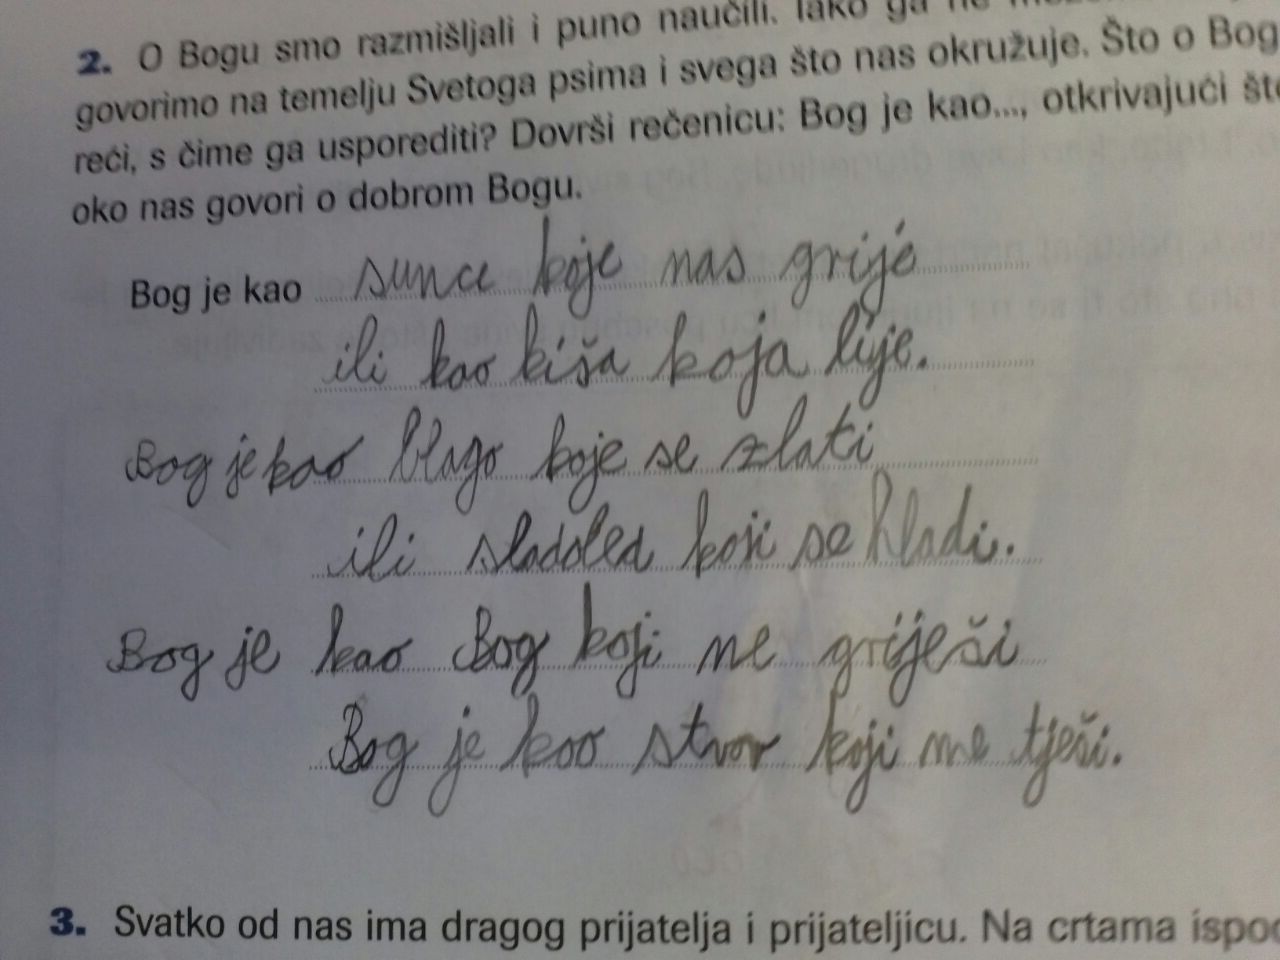 2. O Bogu smo razmišljali i puno naučili. Iako ga ne
govorimo na temelju Svetoga psima i svega što nas okružuje. Što o Bog
reći, s čime ga usporediti? Dovrši rečenicu: Bog je kao..., otkrivajući što
oko nas govori o dobrom Bogu.
Bog je kao sunce koje nas grije
ili kao kiša koja lije.
Bog je kao blago koje se zlati
ili sladoled koji se hladi.
Bog je kao Bog koji ne griješi
Bog je kao stvor koji me tješi.
3. Svatko od nas ima dragog prijatelja i prijateljicu. Na crtama ispod